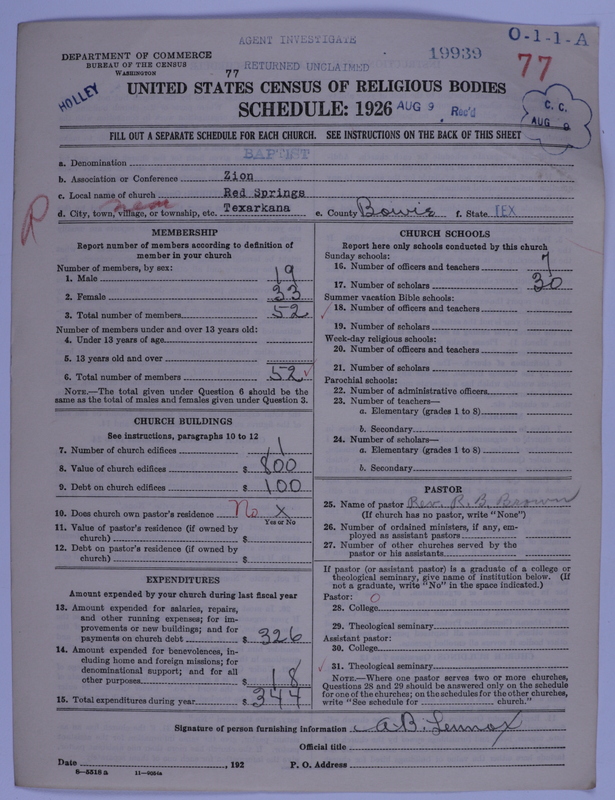 AGENT INVESTIGATE
O-1-1-A
19939
DEPARTMENT OF COMMERCE
BUREAU OF THE CENSUS
WASHINGTON
77 RETURNED UNCLAIMED
77
HOLLEY
UNITED STATES CENSUS OF RELIGIOUS BODIES
SCHEDULE: 1926 AUG 9 Rec'd
C. C.
AUG 9
FILL OUT A SEPARATE SCHEDULE FOR EACH CHURCH. SEE INSTRUCTIONS ON THE BACK OF THIS SHEET
a. Denomination BAPTIST
b. Association or Conference Zion
c. Local name of church Red Springs
d. City, town, village, or township, etc. near Texarkana e. County Bowie f. State TEX
MEMBERSHIP
Report number of members according to definition of
member in your church
Number of members, by sex:
1. Male 19
2. Female 33
3. Total number of members 52
Number of members under and over 13 years old:
4. Under 13 years of age
5. 13 years old and over
6. Total number of members 52
NOTE.—The total given under Question 6 should be
same as the total of males and females given under Question 3.
CHURCH BUILDINGS
See instructions, paragraphs 10 to 12
7. Number of church edifices 1
8. Value of church edifices $ 800
9. Debt on church edifices $ 100
10. Does church own pastor's residence No X
Yes or No
11. Value of pastor's residence (if owned by
church) $
12. Debt on pastor's residence (if owned by
church) $
EXPENDITURES
Amount expended by your church during last fiscal year
13. Amount expended for salaries, repairs,
and other running expenses; for im-
provements or new buildings; and for
payments on church debt $ 326
14. Amount expended for benevolences, in-
cluding home and foreign missions; for
denominational support; and for all
other purposes $ 18
15. Total expenditures during year $ 344
CHURCH SCHOOLS
Report here only schools conducted by this church
Sunday schools:
16. Number of officers and teachers 7
17. Number of scholars 30
Summer vacation Bible schools:
18. Number of officers and teachers
19. Number of scholars
Week-day religious schools:
20. Number of officers and teachers
21. Number of scholars
Parochial schools:
22. Number of administrative officers
23. Number of teachers—
a. Elementary (grades 1 to 8)
b. Secondary
24. Number of scholars—
a. Elementary (grades 1 to 8)
b. Secondary
PASTOR
25. Name of pastor Rev. R. B. Brown
(If church has no pastor, write "None")
26. Number of ordained ministers, if any, em-
ployed as assistant pastors
27. Number of other churches served by the
pastor or his assistants
If pastor (or assistant pastor) is a graduate of a college or
theological seminary, give name of institution below. (If
not a graduate, write "No" in the space indicated.)
Pastor: 0
28. College
29. Theological seminary
Assistant pastor:
30. College
31. Theological seminary
NOTE.—Where one pastor serves two or more churches,
Questions 28 and 29 should be answered only on the schedule
for one of the churches; on the schedules for the other churches,
write "See schedule for church."
Signature of person furnishing information A B. Lennox
Official title
Date , 192 P. O. Address
8-5318 a 11-9054a